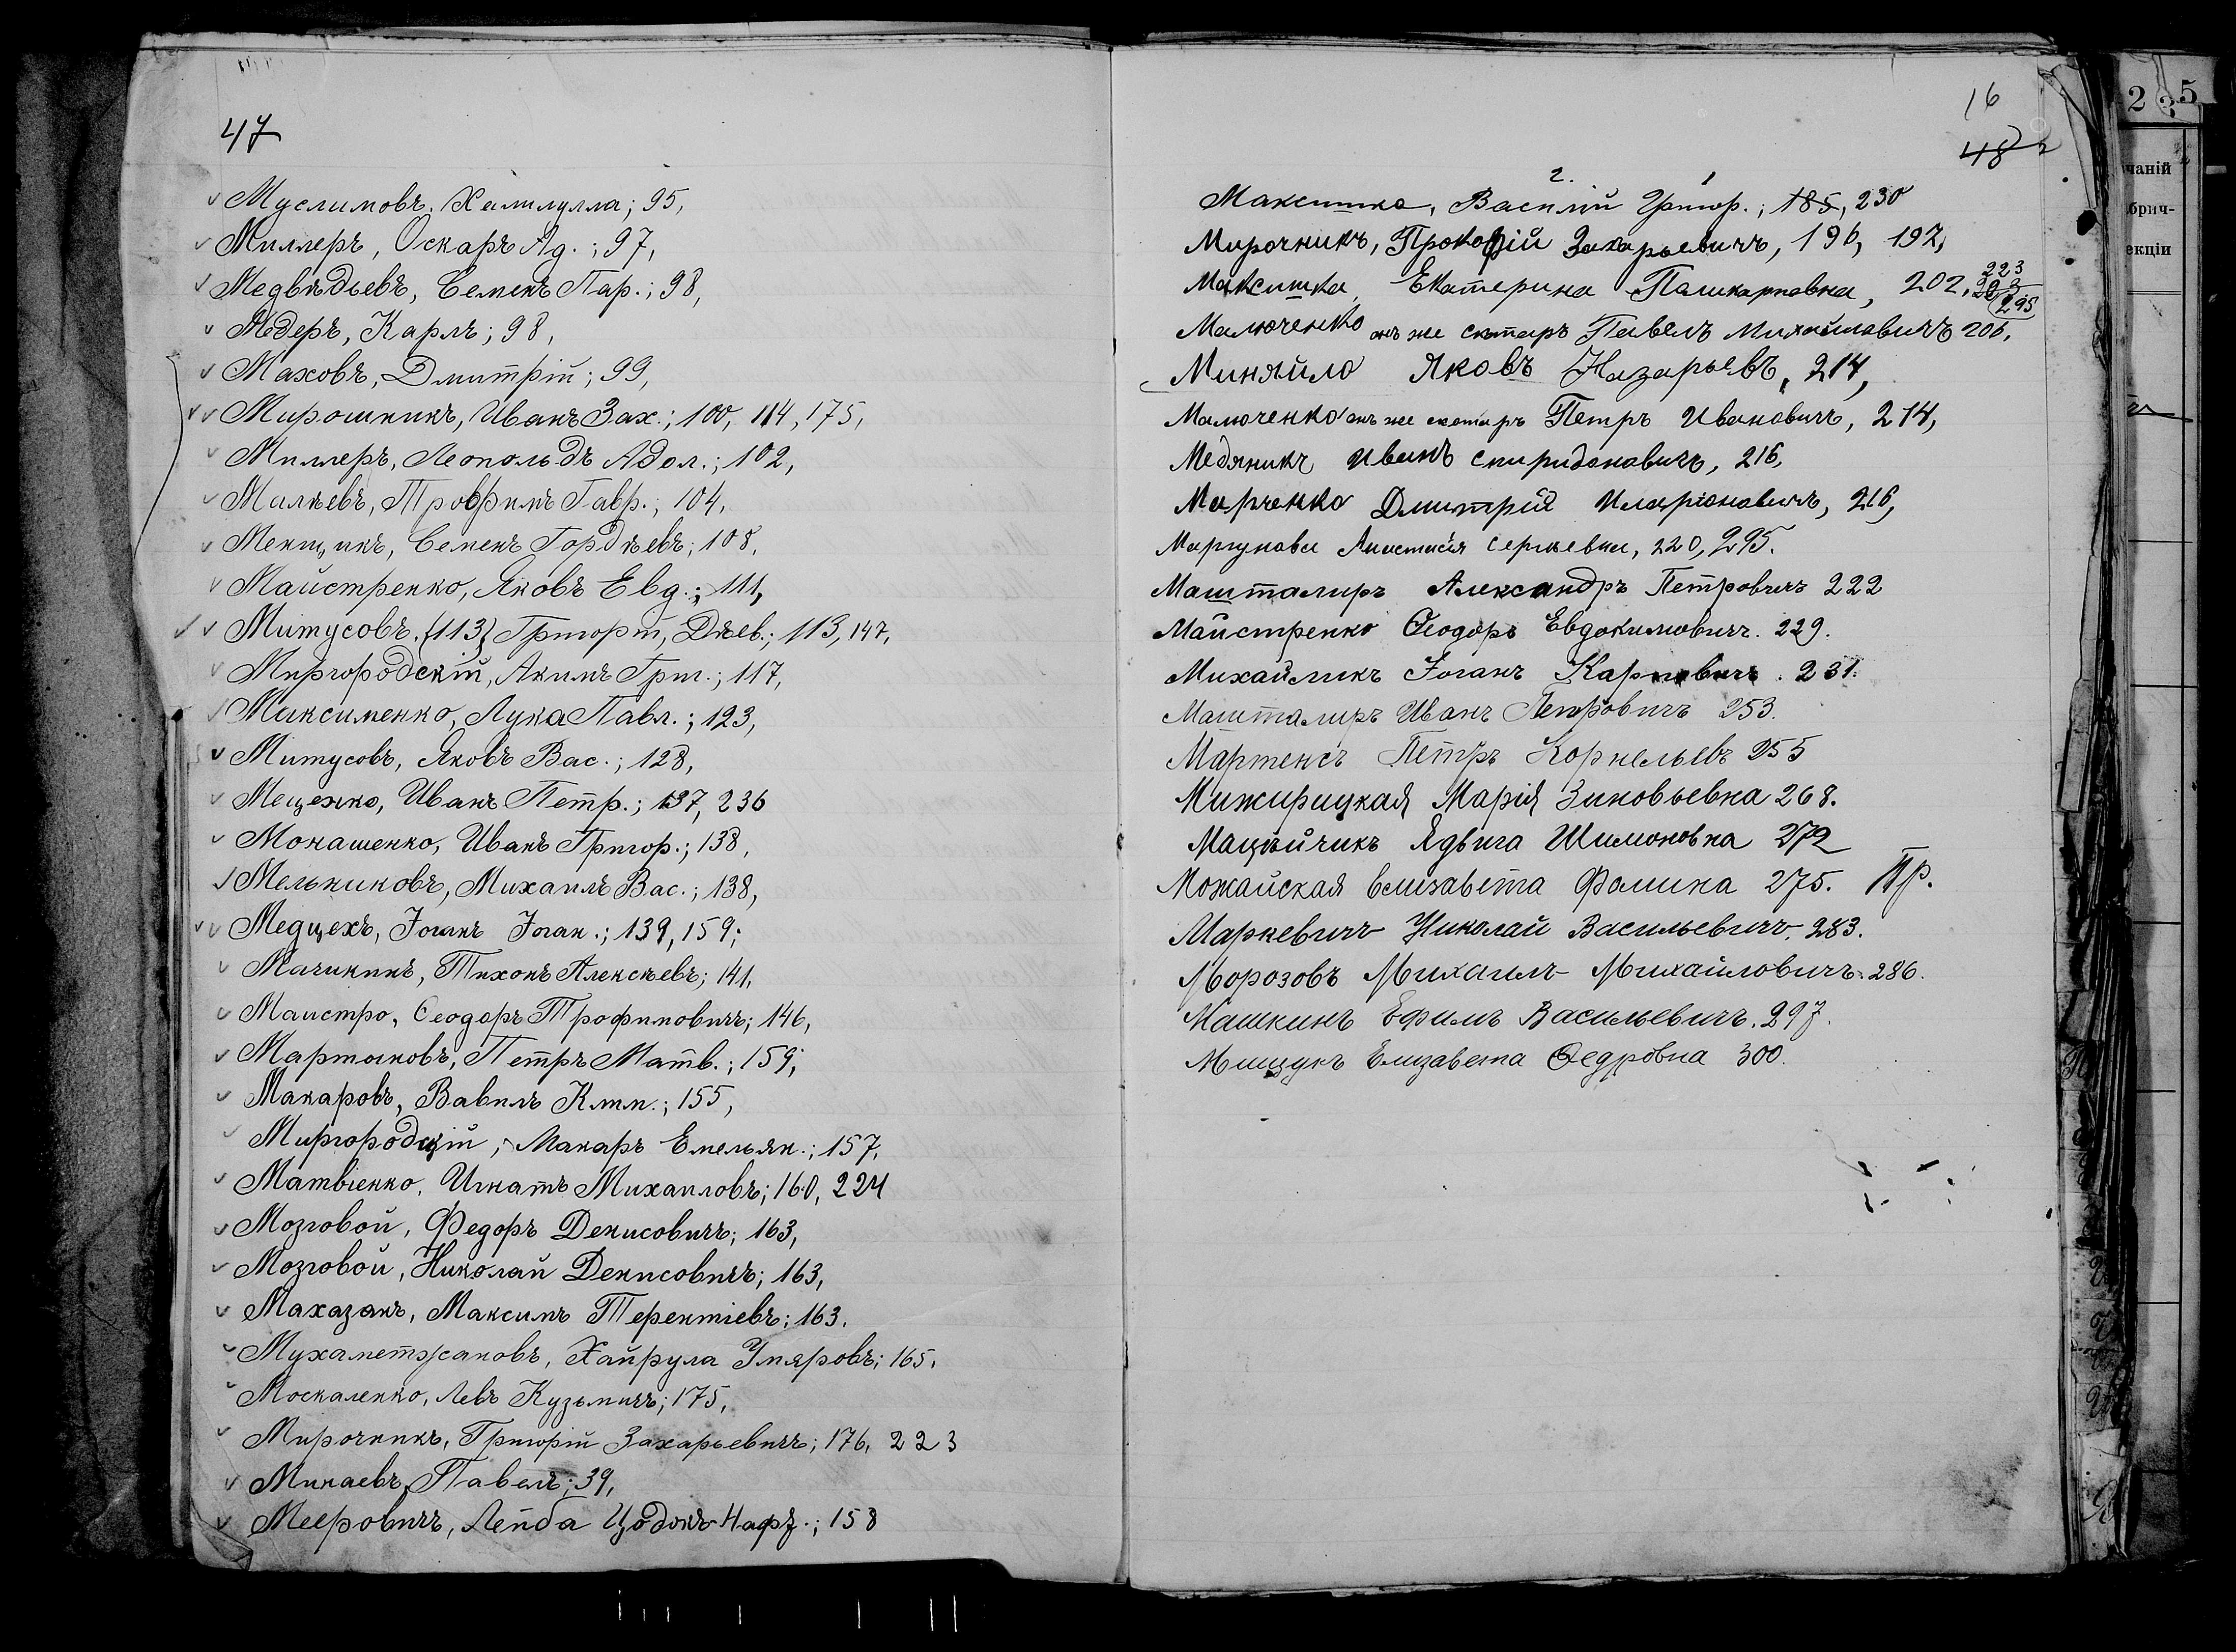 47
Муслимовъ, Хамилулла; 95,
Миллеръ, Оскаръ Ад.; 97,
Медвѣдьевъ, Семенъ Пар.; 98,
Медеръ, Карлъ; 98,
Маховъ, Дмитрій; 99,
Мирошникъ, Иванъ Зах.; 100, 114, 175,
Миллеръ, Леопольдъ Адол.; 102,
Малѣевъ, Трофимъ Гавр.; 104,
Менщикъ, Семенъ Гордѣевъ; 108,
Майстренко, Яковъ Евд.; 111,
Митусовъ, {113} Григорій, Дѣев.; 113, 147,
Миргородскій, Акимъ Григ.; 117,
Максименко, Лука Павл.; 123,
Митусовъ, Яковъ Вас.; 128,
Мещенко, Иванъ Петр.; 137, 236
Монашенко, Иванъ Григор.; 138,
Мельниковъ, Михаилъ Вас.; 138,
Медцехъ, Іоганъ Іоган.; 139, 159;
Мачикинъ, Тихонъ Алексѣевъ; 141,
Маистро, Ѳеодоръ Трофимовичъ; 146,
Мартыновъ, Петръ Матв.; 159;
Макаровъ, Вавилъ Клим.; 155,
Миргородскій, Макаръ Емельян.; 157,
Матвіенко, Игнатъ Михаиловъ; 160, 224
Мозговой, Федоръ Денисовичъ; 163,
Мозговой, Николай Денисовичъ; 163,
Махазанъ, Максимъ Терентіевъ; 163.
Мухаметжановъ, Хайрула Умяровъ; 165,
Москаленко, Левъ Кузьмичъ; 175,
Мирочникъ, Григорій Захарьевичъ; 176, 223
Минаевъ, Павелъ; 39,
Мееровичъ, Лейба Цодикъ; 158
16
48
2. 1
Максишко, Василій Григор.; 185, 230
Мирочникъ, Прокофій Захарьевичъ, 196, 197,
Максишка, Екатерина Поликарповна, 202, 223
295
Малюченко онъ же скотаръ Павелъ Михайловичъ 206,
Миняйло Яковъ Назарьевъ, 214,
Малюченко онъ же скотаръ Петръ Ивановичъ, 214,
Медяникъ Иванъ Спиридоновичъ, 216,
Марченко Дмитрій Иларіоновичъ, 216,
Маргунова Анастасія Сергѣевна, 220, 295.
Машталиръ Александръ Петровичъ 222
Майстренко Ѳеодоръ Евдокимовичъ. 229.
Михайликъ Іоганъ Карповичъ. 231.
Машталиръ Иванъ Петровичъ 253.
Мартенсъ Петръ Корнельевъ 255
Мижирицкая Марія Зиновьевна 268.
Мацѣйчикъ Ядвига Шимоновна 272
Можайская Елизавета Фомина 275. Пр.
Маркевичъ Николай Васильевичъ. 283.
Морозовъ Михаилъ Михайловичъ. 286.
Машкинъ Ефимъ Васильевичъ. 297.
Мищукъ Елизавета Ѳедровна 300.
2 3 5
чаній
брич-
екціи